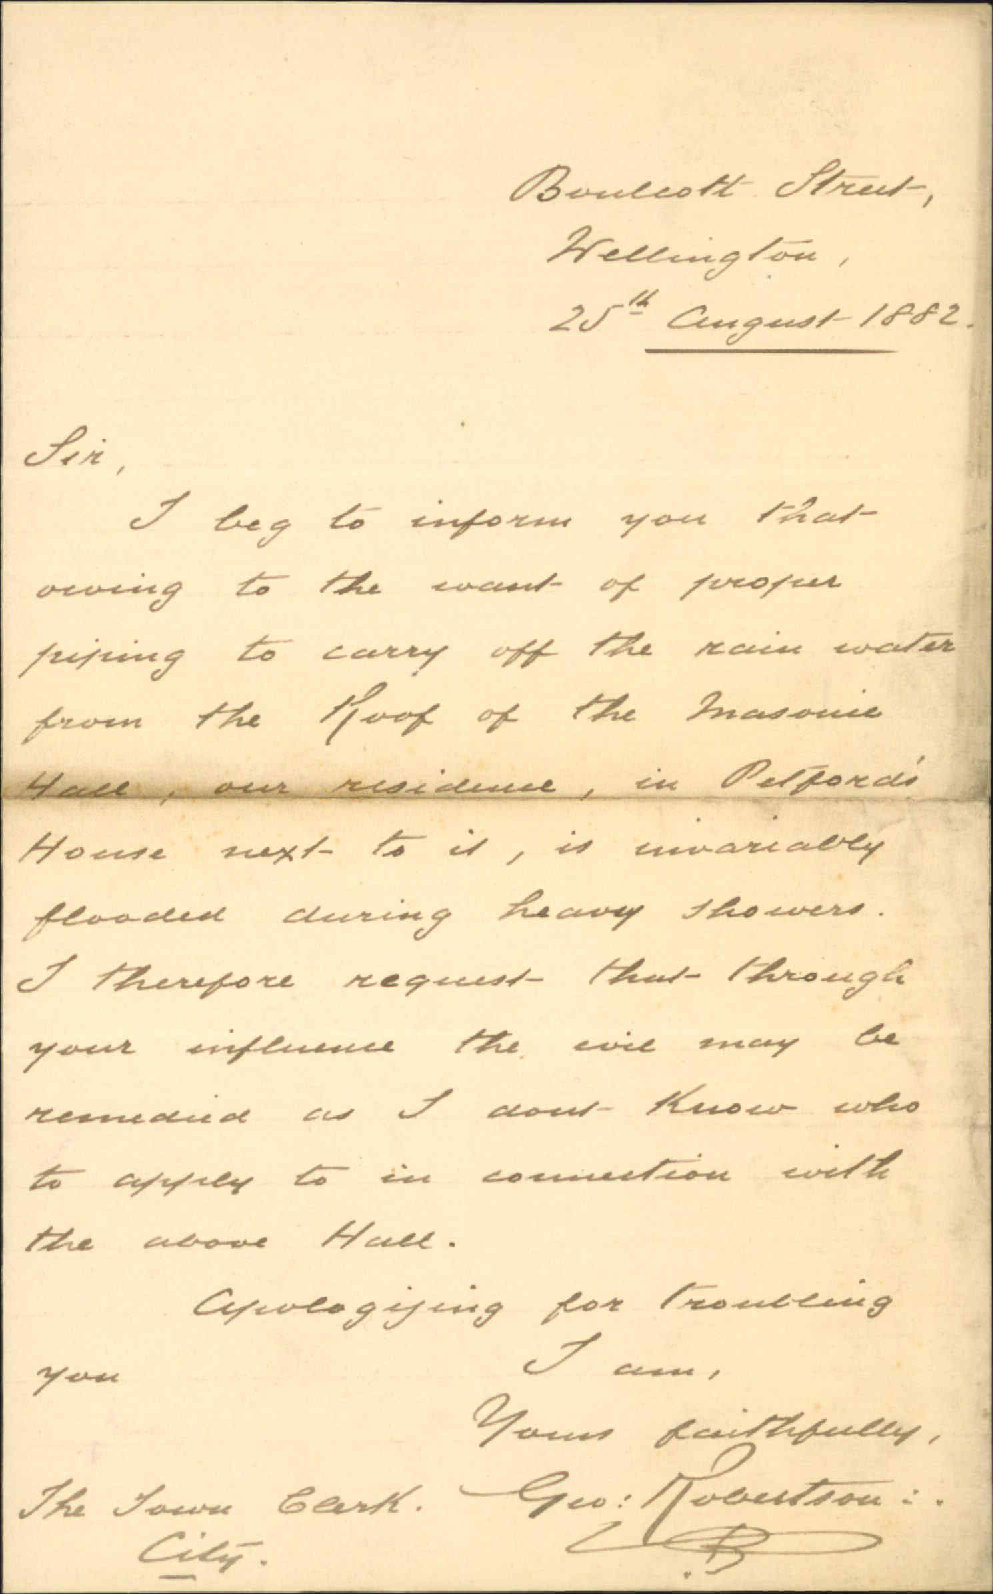 Boulcott Street,
Wellington,
25th August 1882.
Sir,
I beg to inform you that
owing to the want of proper
piping to carry off the rain water
from the Roof of the Masonic
Hall, our residence, in Petford's
House next to it, is invariably
flooded during heavy showers.
I therefore request that through
your influence the evil may be
remedied as I dont Know who
to apply to in connection with
the above Hall.
Apologising for troubling
you I am,
Yours faithfully,
The Town Clerk. Geo: Robertson:.
City.